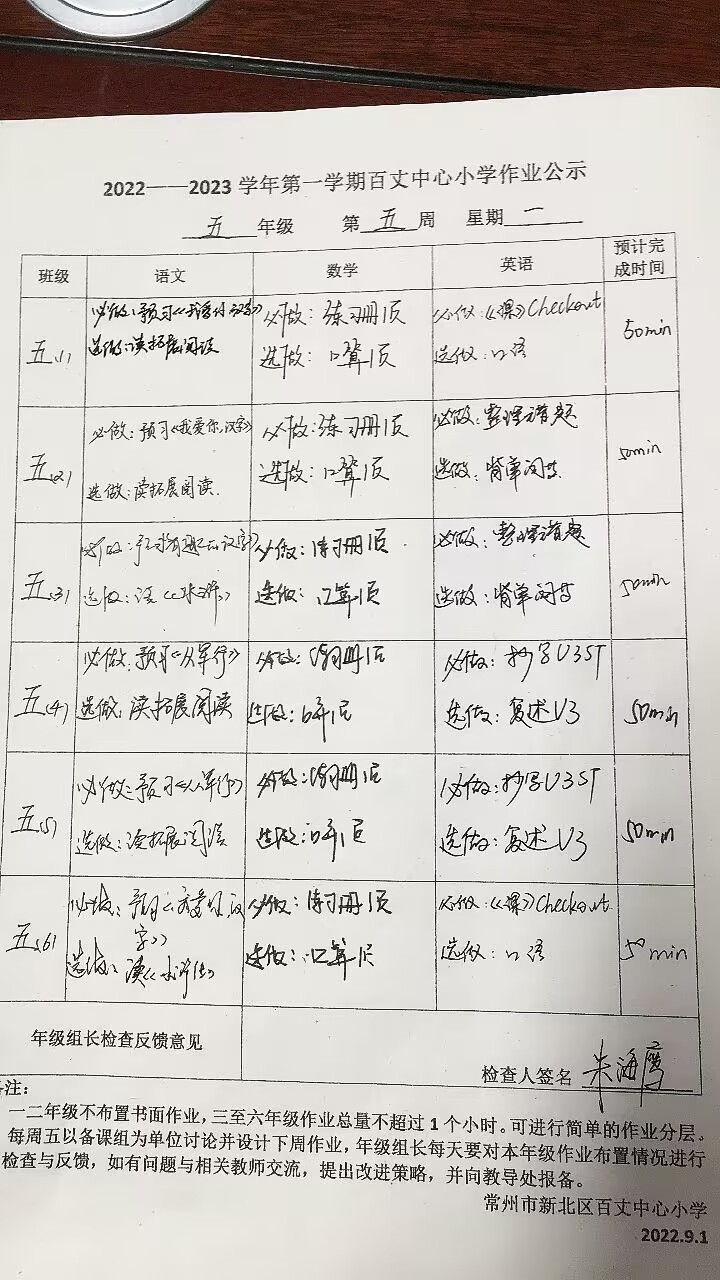 2022——2023 学年第一学期百丈中心小学作业公示
五 年级 第 五 周 星期 一
班级 语文 数学 英语 预计完成时间
五(1)
必做:预习《我爱你,汉字》
选做:读拓展阅读
必做:练习册1页
选做:口算1页
必做:《课》Checkout
选做:口语
50min
五(2)
必做:预习《我爱你,汉字》
选做:读拓展阅读.
必做:练习册1页
选做:口算1页
必做:整理错题
选做:背单词
50min
五(3)
必做:预习《有趣的汉字》
选做:读《水浒》
必做:练习册1页
选做:口算1页
必做:整理错题
选做:背单词
50min
五(4)
必做:预习《从军行》
选做:读拓展阅读
必做:练习册1页
选做:口算1页
必做:抄写U3ST
选做:复述U3
50min
五(5)
必做:预习《从军行》
选做:读拓展阅读
必做:练习册1页
选做:口算1页
必做:抄写U3ST
选做:复述U3
50min
五(6)
必做:预习《我爱你,汉
字》
选做:读《水浒传》
必做:练习册1页
选做:口算1页
必做:《课》Checkout
选做:口语
50min
年级组长检查反馈意见
检查人签名 朱海鹰
备注:
一二年级不布置书面作业,三至六年级作业总量不超过 1 个小时。可进行简单的作业分层。
每周五以备课组为单位讨论并设计下周作业,年级组长每天要对本年级作业布置情况进行
检查与反馈,如有问题与相关教师交流,提出改进策略,并向教导处报备。
常州市新北区百丈中心小学
2022.9.1